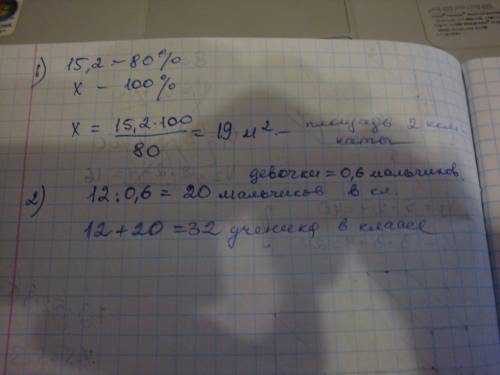 1) 15,2 – 80%
х – 100%
х = 15,2·100 / 80 = 19 м² – площадь 2 ком-
наты
девочки = 0,6 мальчиков.
2) 12 : 0,6 = 20 мальчиков в кл.
12 + 20 = 32 ученика в классе